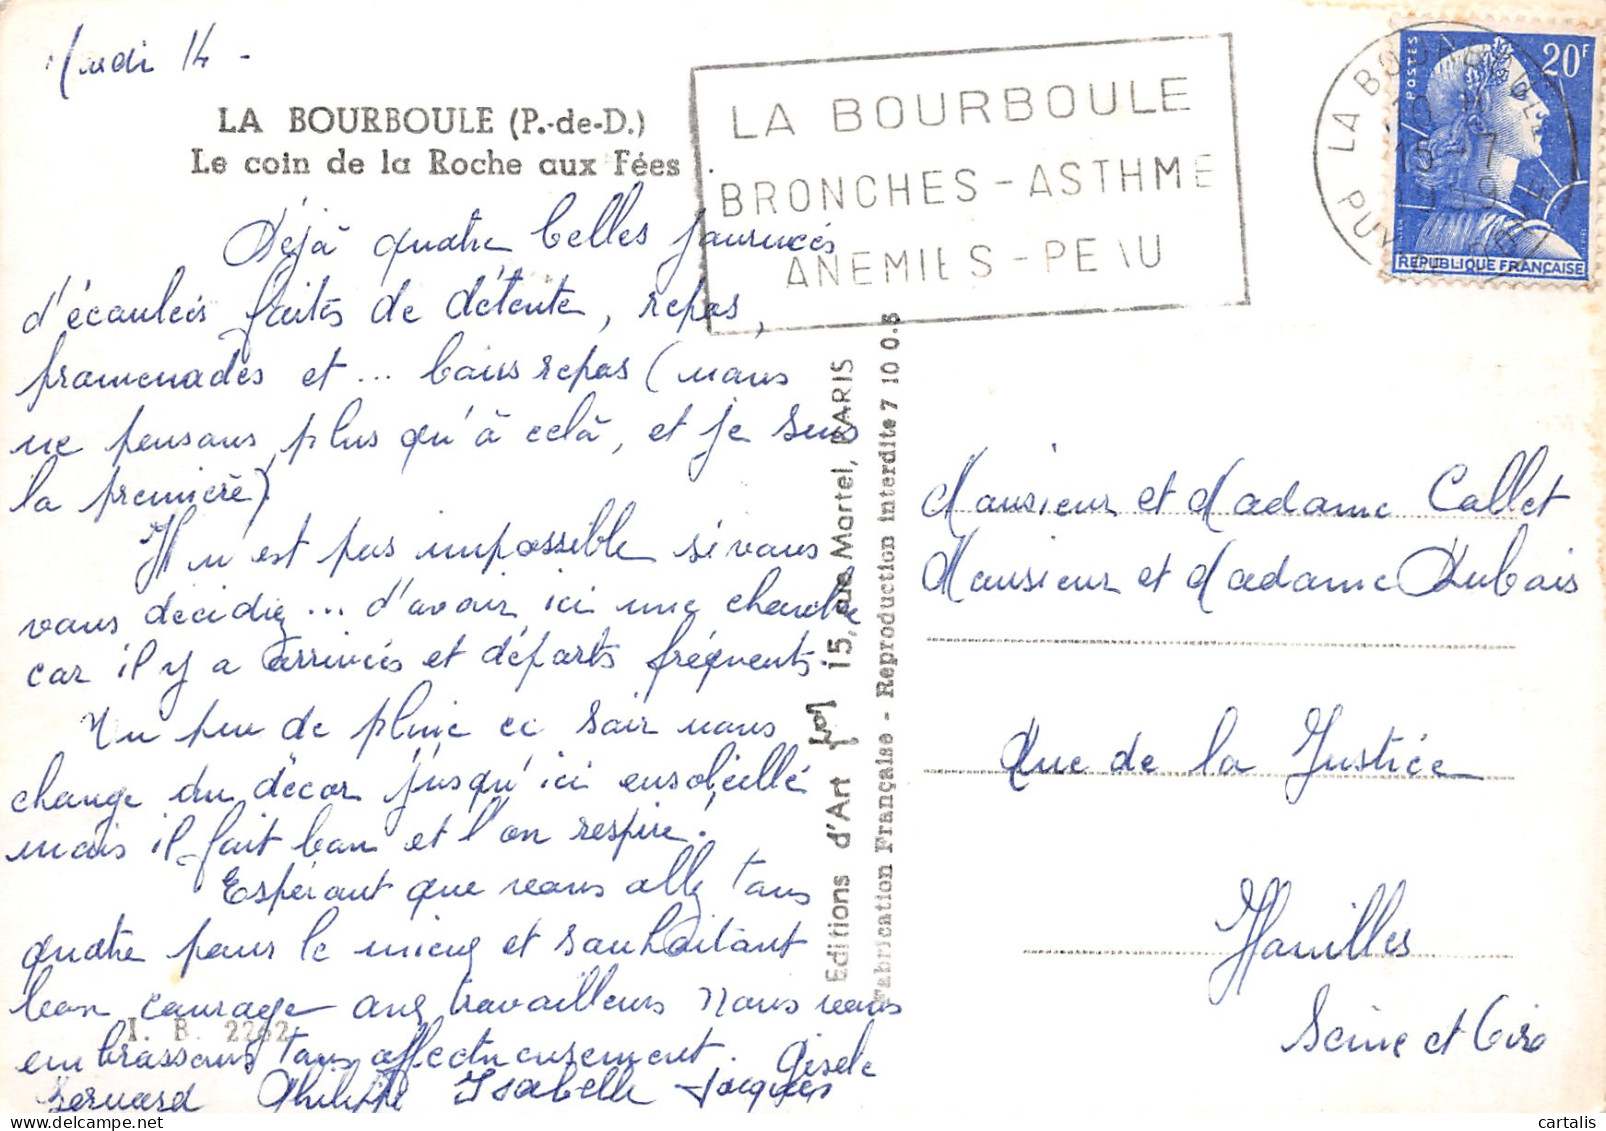 Mardi 14 -
LA BOURBOULE (P.-de-D.)
Le coin de la Roche aux Fées
LA BOURBOULE
BRONCHES - ASTHME
ANEMIES - PEAU
LA BOURBOULE
15 - 7
PUY DE DOME
POSTES
20F
REPUBLIQUE FRANÇAISE
Déjà quatre belles journées
d'écoulées faites de détente, repos,
promenades et ... bons repas (nous
ne pensons plus qu'à celà, et je suis
la première).
Il n'est pas impossible si vous
vous décidiez ... d'avoir ici une chambre
car il y a arrivées et départs fréquents.
Un peu de pluie ce soir nous
change du décor jusqu'ici ensoleillé
mais il fait bon et l'on respire.
Espérant que vous allez tous
quatre pour le mieux et souhaitant
bon courage aux travailleurs nous vous
embrassons tous affectueusement. Gisèle
Bernard Philippe Isabelle Jacques
I. B. 2262
Editions d'Art 15, rue Martel, PARIS
Fabrication Française - Reproduction interdite 7 10 0.5
Monsieur et Madame Callet
Monsieur et Madame Dubois
Rue de la Justice
Houilles
Seine et Oise
cartalis